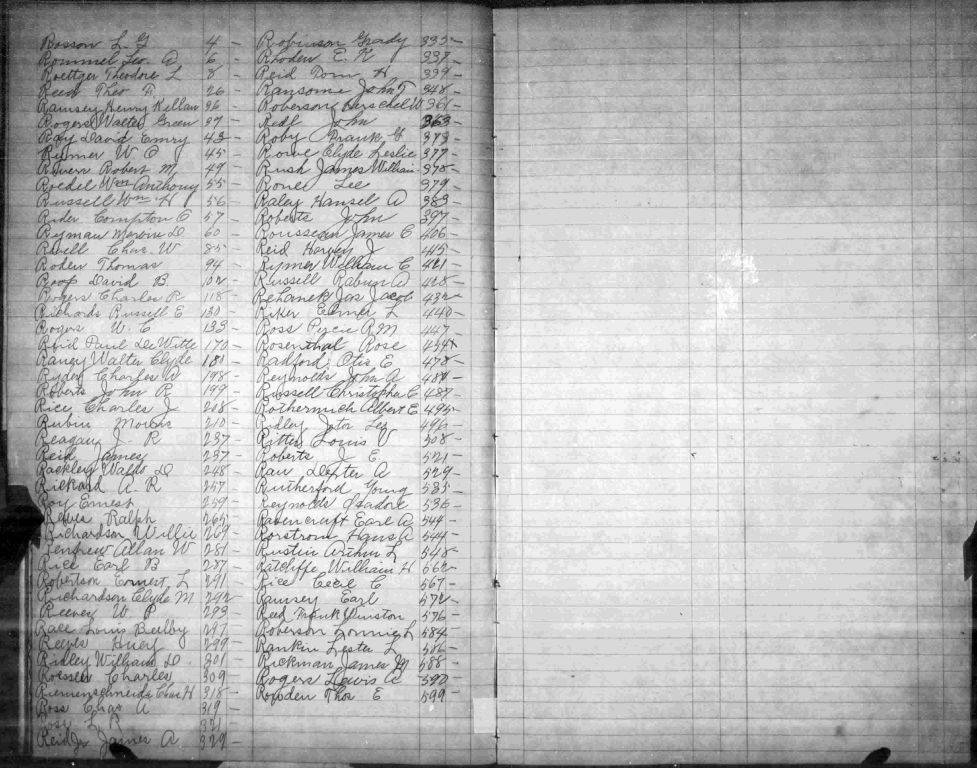 Bosson L G 4 -
Rommel Geo. A 6 -
Roettger Theodore L 8 -
Reed Theo F. 26 -
Ramsey Henry Killian 36 -
Rogers Walter Green 37 -
Ray David Emry 43 -
Rymer W O 45 -
Rivers Robert M 49 -
Roedel Wm Anthony 55 -
Russell Wm H 56 -
Rider Compton C 57 -
Ryman D 60 -
Revell Chas. W 85 -
Roden Thomas 94 -
Roof David B. 102 -
Rogers Charles R 118 -
Richards Russell E 130 -
Rogers W. C 133 -
Reid Paul De Witte 170 -
Raney Walter Clyde 181 -
Ryder Charles W 198 -
Roberts John R 199 -
Rice Charles J 218 -
Rubin Morris 210 -
Reagan J. R 237 -
Reid James 237 -
Rackley Waldo D 248 -
Rickard A. R 257 -
Roy Ernest 259 -
Reeves Ralph 265 -
Richardson Willie 269 -
Renfrew Allan W 281 -
Rice Earl B 287 -
Robertson Ernest L 291 -
Richardson Clyde M 292 -
Reeves W P 293 -
Race Louis 297 -
Reeves Huey 299 -
Ridley William D. 301 -
Roesler Charles 309 -
H 318 -
Ross Chas A 319 -
Rose L R 321 -
Reid Jr James A 329 -
Robinson Grady 335 -
Rhoden E. H 337 -
Reid Dorn H 339 -
Ransome John T 348 -
Roberson Herschel W 361 -
John 363 -
Roby Frank G 373 -
Rowe Clyde Leslie 377 -
Rush James William 378 -
Rone Lee 379 -
Raley Hansel A 383 -
Roberts John 397 -
Rousseau James C 406 -
Reid Harvey J 415 -
Rymer William C 421 -
Russell Rabun A 428 -
Rehanek Jos Jacob 432 -
Riker Elmer L 440 -
Ross R M 447 -
Rosenthal Rose 454 x
Radford Otis E 478 -
Reynolds John A 484 -
Russell Christopher C 487 -
Rothermich Albert E 495 -
Ridley Lee 496 -
Ritter Louis V 508 -
Roberts J E 521 -
Raw Dexter A 529 -
Rutherford Young 535 -
Reynolds Isadore 536 -
Ravencraft Earl A 544 -
Rorstrom Hans A 544 -
Rustin Arthur L 548 -
Ratcliffe William H 562 -
Rice Cecil C 567 -
Ramsey Earl 572 -
Reed Frank Winston 576 -
Roberson Lonnie L 584 -
Rankin Lester L 586 -
Rickman James M 588 -
Rogers Lewis A 590 -
Rowden Thos E 599 -